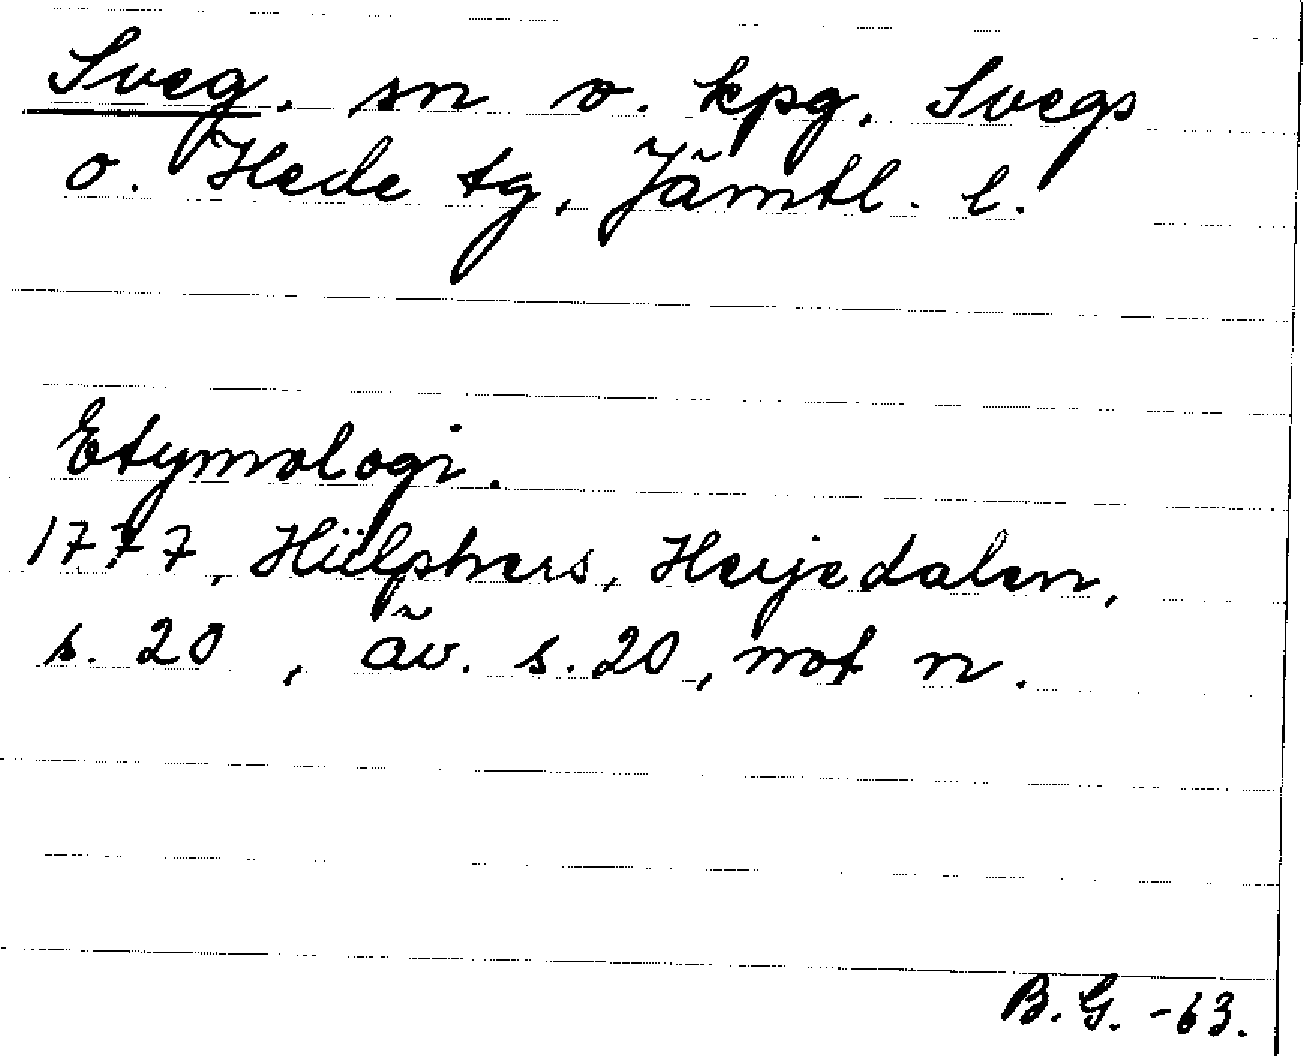 Sveg. sn o. kpg. Svegs
o. Hede tg, Jämtl. l.
Etymologi.
1777, Hülphers, Herjedalen,
s. 20, äv. s. 20, not n.
B.G. -63.